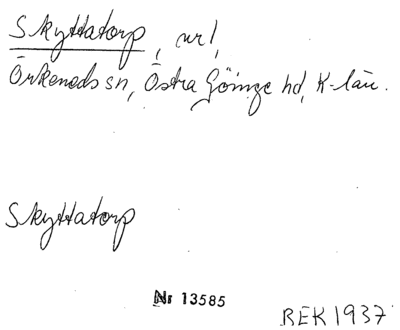 Skyttatorp, nr 1,
Örkeneds sn, Östra Göinge hd, K-län.
Skyttatorp
Nr 13585
BEK 1937